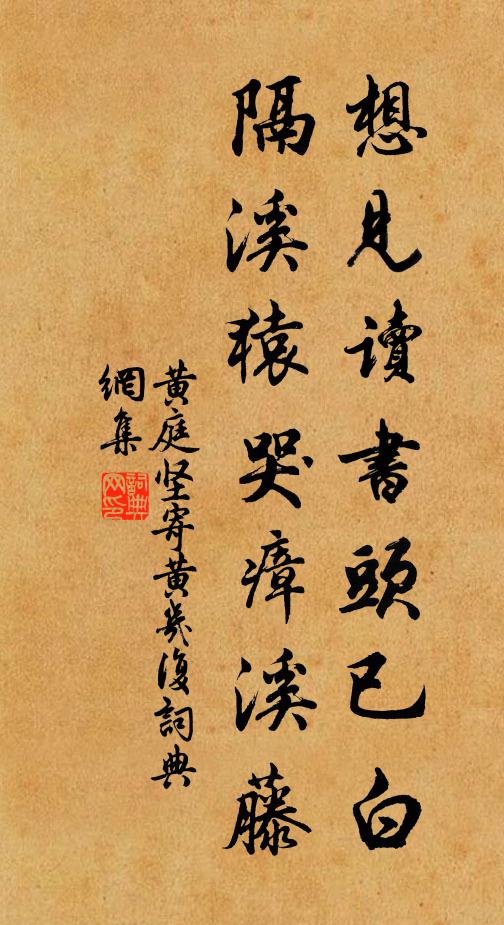 想見讀書頭已白
隔溪猿哭瘴溪藤
黄庭坚寄黄幾復詞典
網集
詞典
网印